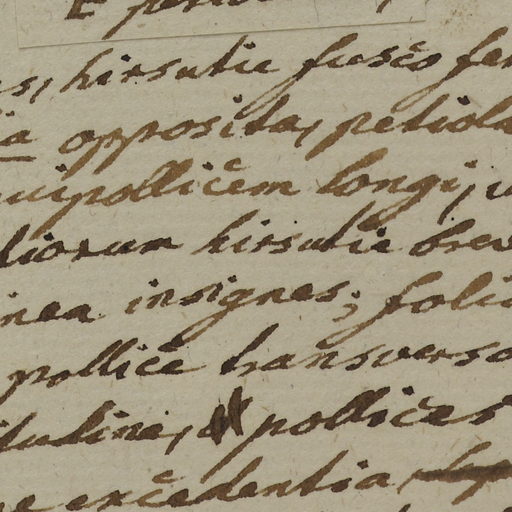 s, hirsutie fusco fer
ia opposita, petiola
uipollicem longi, u
tiorum hirsutie brev
inea insignes; folia
pollice transverso
itudine, pollices
ne excedentia,